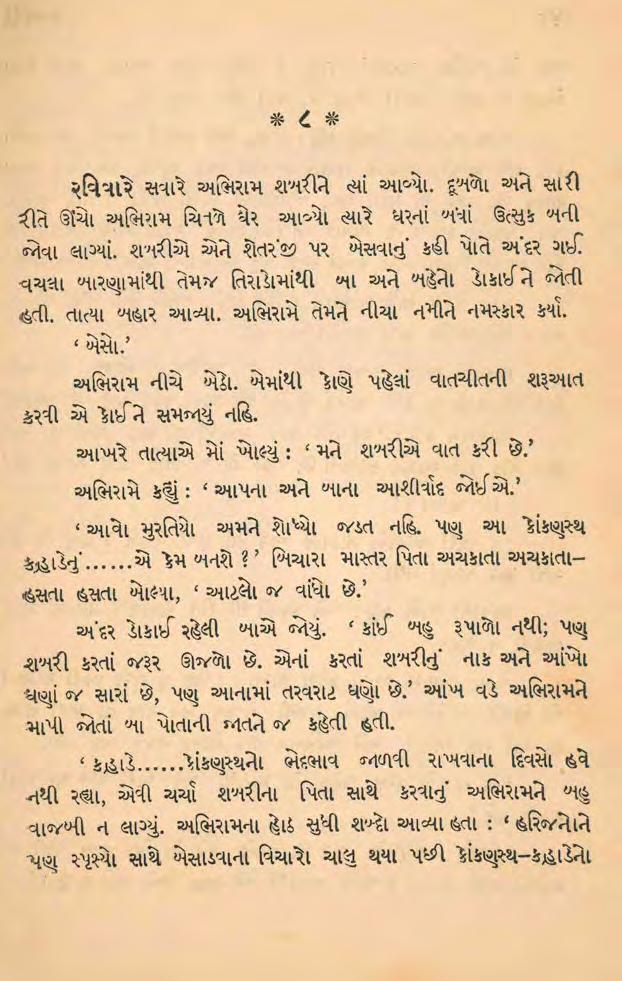 * ૮ *
રવિવારે સવારે અભિરામ શબરીને ત્યાં આવ્યો. દૂબળો અને સારી
રીતે ઊંચો અભિરામ ચિતળે ઘેર આવ્યો ત્યારે ઘરનાં બધાં ઉત્સુક બની
જોવા લાગ્યાં. શબરીએ એને શેતરંજી પર બેસવાનું કહી પોતે અંદર ગઈ.
વચલા બારણામાંથી તેમજ તિરાડોમાંથી બા અને બહેનો ડોકાઈને જોતી
હતી. તાત્યા બહાર આવ્યા. અભિરામે તેમને નીચા નમીને નમસ્કાર કર્યા.
‘ બેસો.’
અભિરામ નીચે બેઠો. બેમાંથી કોણે પહેલાં વાતચીતની શરૂઆત
કરવી એ કોઈને સમજાયું નહિ.
આખરે તાત્યાએ મોં ખોલ્યું : ‘ મને શબરીએ વાત કરી છે.’
અભિરામે કહ્યું : ‘ આપના અને બાના આશીર્વાદ જોઈએ.’
‘ આવો મુરતિયો અમને શોધ્યો જડત નહિ. પણ આ કોંકણસ્થ
કહ્રાડેનું......એ કેમ બનશે ? ’ બિચારા માસ્તર પિતા અચકાતા અચકાતા–
હસતા હસતા બોલ્યા, ‘ આટલો જ વાંધો છે.’
અંદર ડોકાઈ રહેલી બાએ જોયું. ‘ કાંઈ બહુ રૂપાળો નથી; પણ
શબરી કરતાં જરૂર ઊજળો છે. એનાં કરતાં શબરીનું નાક અને આંખો
ઘણાં જ સારાં છે, પણ આનામાં તરવરાટ ઘણો છે.’ આંખ વડે અભિરામને
માપી જોતાં બા પોતાની જાતને જ કહેતી હતી.
‘ કહ્રાડે......કોંકણસ્થનો ભેદભાવ જાળવી રાખવાના દિવસો હવે
નથી રહ્યા, એવી ચર્ચા શબરીના પિતા સાથે કરવાનું અભિરામને બહુ
વાજબી ન લાગ્યું. અભિરામના હોઠ સુધી શબ્દો આવ્યા હતા : ‘ હરિજનોને
પણ સ્પૃશ્યો સાથે બેસાડવાના વિચારો ચાલુ થયા પછી કોંકણસ્થ–કહ્રાડેનો